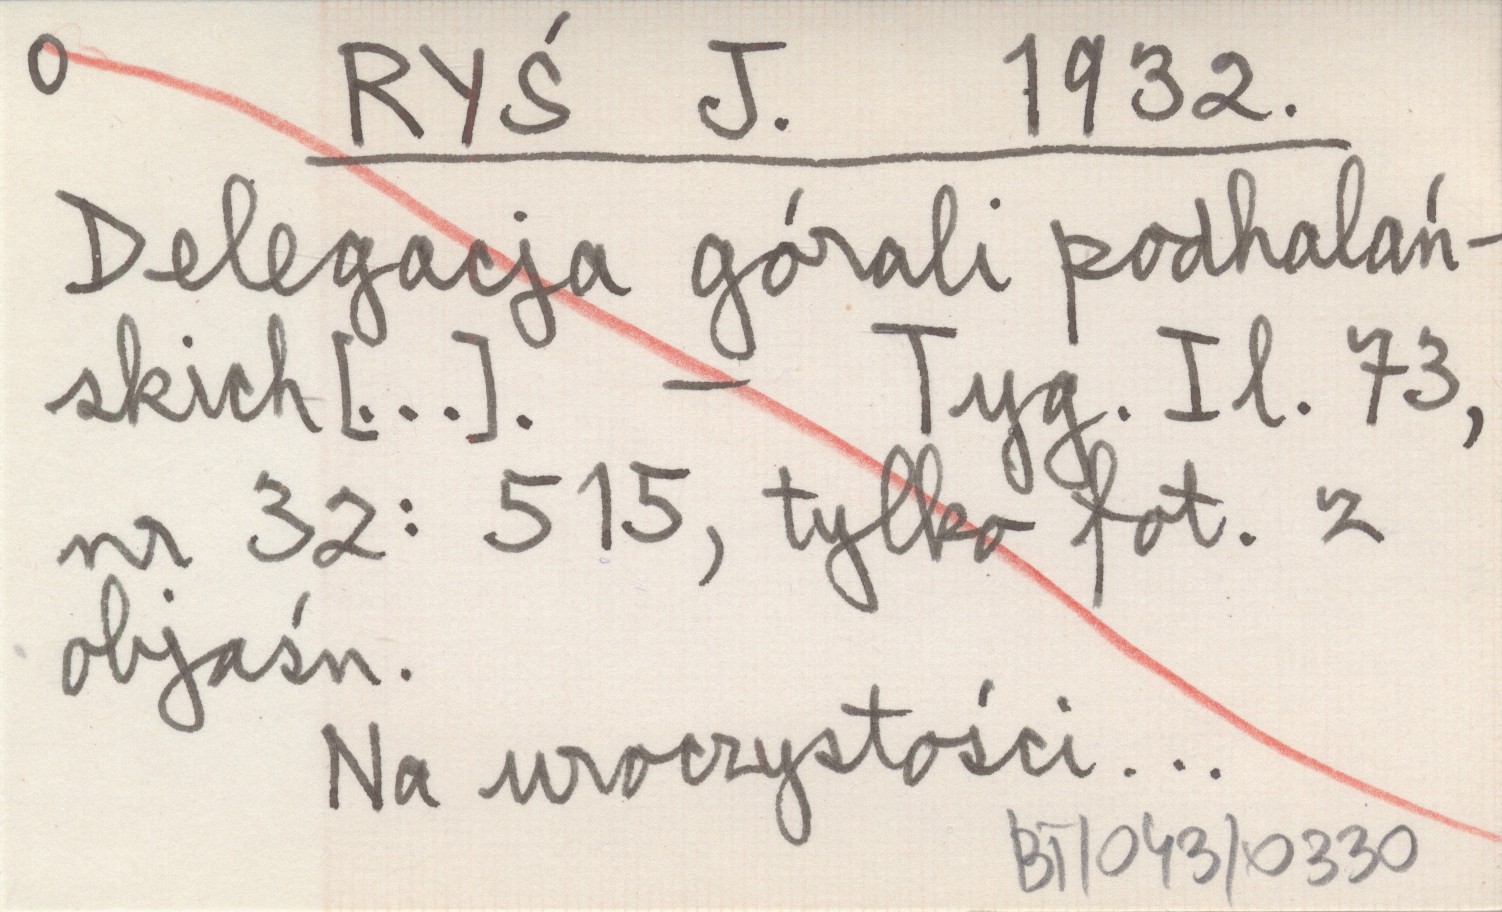 0 RYŚ J. 1932.
Delegacja górali podhalań-
skich[...]. — Tyg. Il. 73,
nr 32: 515, tylko fot. z
objaśn.
Na uroczystości...
BT/043/0330